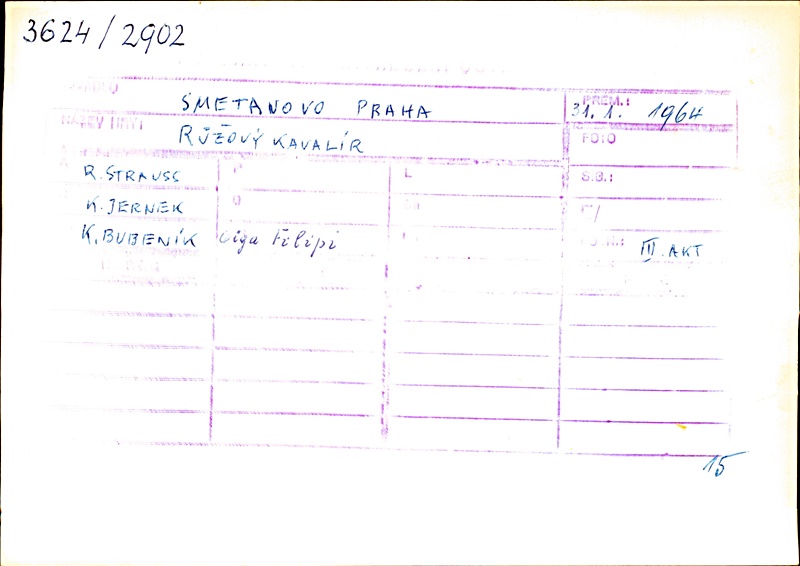 3624/2902
SMETANOVO PRAHA
PREM.: 31. 1. 1964
NÁZEV HRY:
RŮŽOVÝ KAVALÍR
FOTO
R. STRAUSS
L
S.B.:
K. JERNEK
K. BUBENÍK Olga Filipi
III. AKT
15